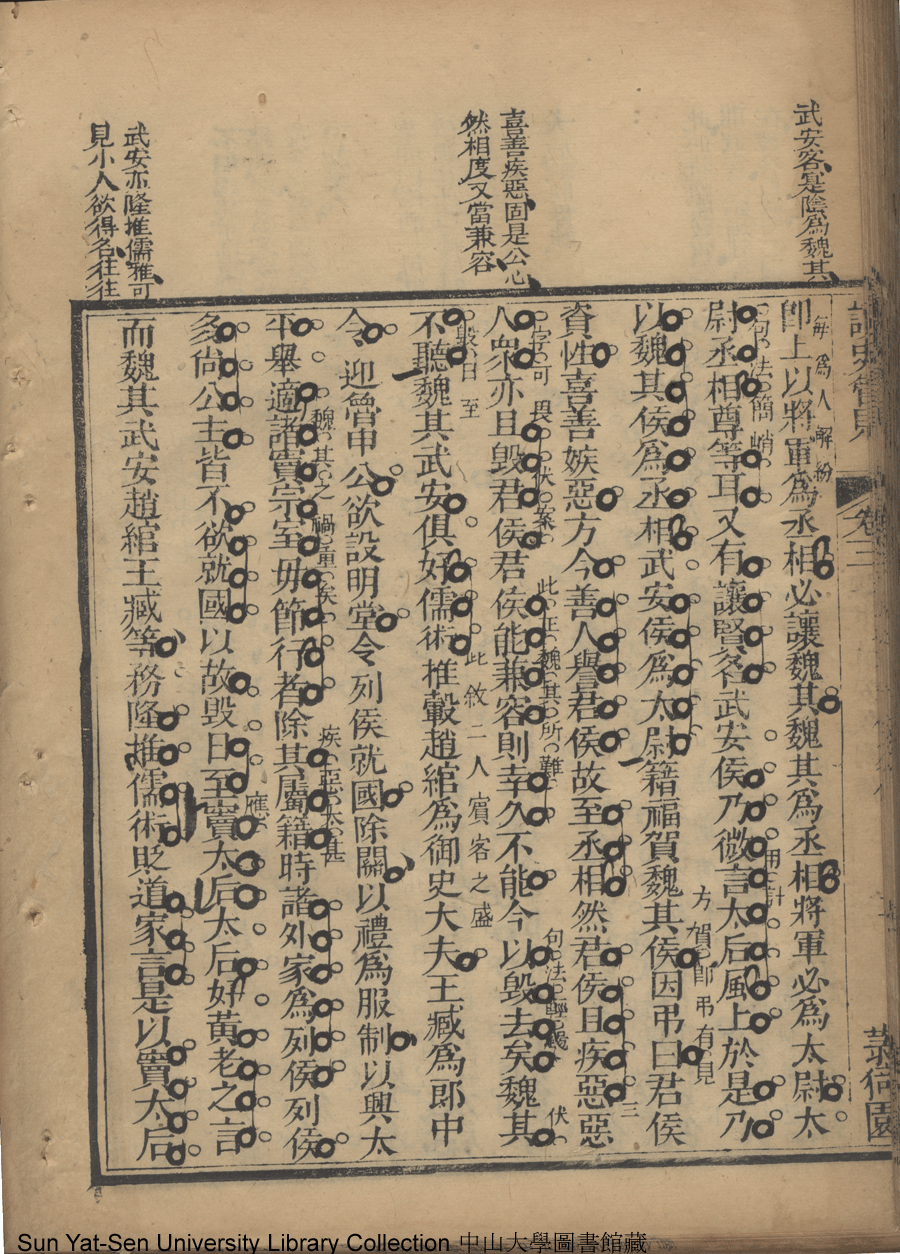 武安客寔陰為魏其
喜善疾惡固是公心
然相度又當兼容
武安亦隆推儒雅可
見小人欲得名往往
卷三
即上以將軍為丞相必讓魏其魏其為丞相將軍必為太尉太
每為人解紛
尉丞相尊等耳又有讓賢名武安侯乃微言太后風上於是乃
句法簡峭
用計
以魏其侯為丞相武安侯為太尉籍福賀魏其侯因弔曰君侯
方賀即弔有見
資性喜善嫉惡方今善人譽君侯故至丞相然君侯且疾惡惡
三
人衆亦且毀君侯君侯能兼容則幸久不能今以毀去矣魏其
字可畏伏案
此正魏其所難
句法
伏
不聽魏其武安俱好儒術推轂趙綰為御史大夫王臧為郎中
毀日至
此敘二人賓客之盛
令迎魯申公欲設明堂令列侯就國除關以禮為服制以興太
平舉適諸竇宗室毋節行者除其屬籍時諸外家為列侯列侯
魏其之禍重疾
疾惡太甚
多尚公主皆不欲就國以故毀日至竇太后太后好黃老之言
應
而魏其武安趙綰王臧等務隆推儒術貶道家言是以竇太后
Sun Yat-Sen University Library Collection 中山大學圖書館藏